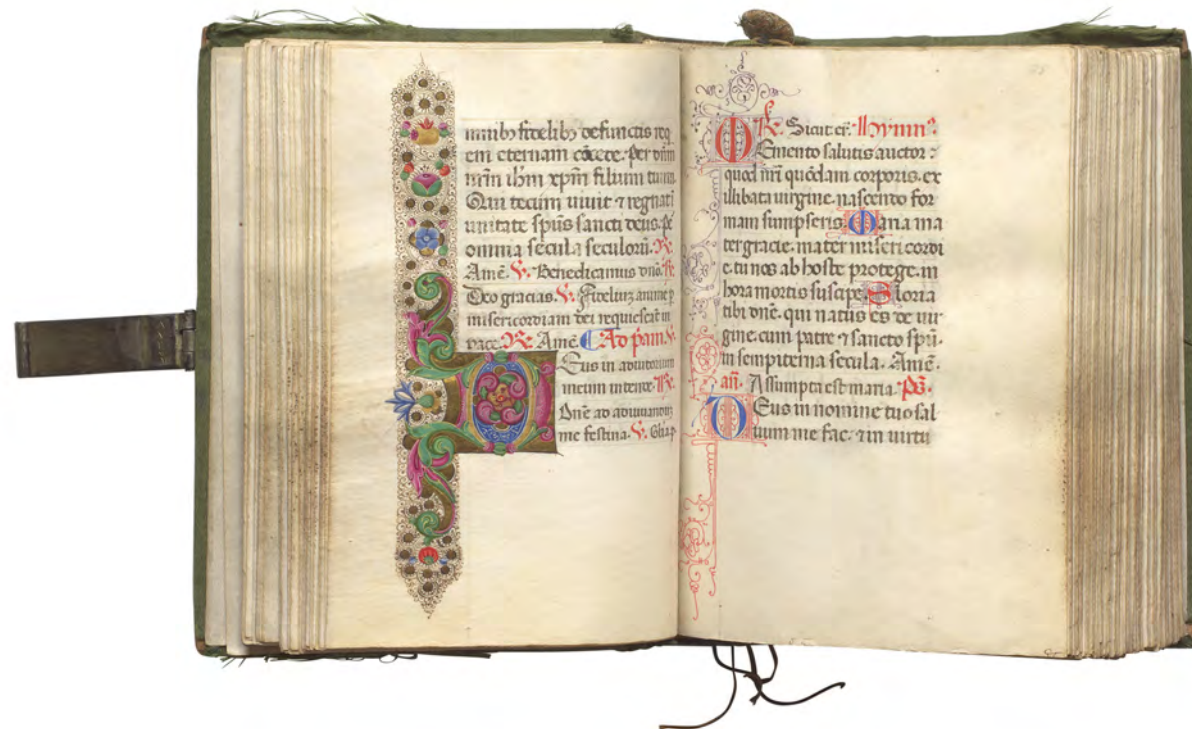 nnibꝫ fidelibꝫ defunctis req
em eternam cōcede. Per dn̄m
nr̄m ih̄m xp̄m filium tuum
Qui tecum uiuit ⁊ regnat ī
unitate sp̄us sancti deus. ꝑ
omnia secula seculorū. ℟.
Amē. ℣. Benedicamus dnō. ℟.
Deo gracias. ℣. Fideliuꝫ anime ꝑ
misericordiam dei requiescāt in
pace. ℟. Amē. Ad pām. ℣.
Deus in adiutorium
meum intende. ℟.
Dn̄e ad adiuuanduꝫ
me festina. ℣. Glīa p
℟. Sicut er̄. Hymnꝰ.
Memento salutis auctor:
quod nr̄i quōdam corporis. ex
illibata uirgine. nascendo for
mam sumpseris. Maria ma
ter gracie. mater misericordi
e. tu nos ab hoste protege. in
hora mortis suscipe. Gloria
tibi dn̄e. qui natus es de uir
gine. cum patre ⁊ sancto sp̄u.
in sempiterna secula. Amē.
an̄. Assumpta est maria. p̄s.
Deus in nomine tuo sal
uum me fac. ⁊ in uirtu